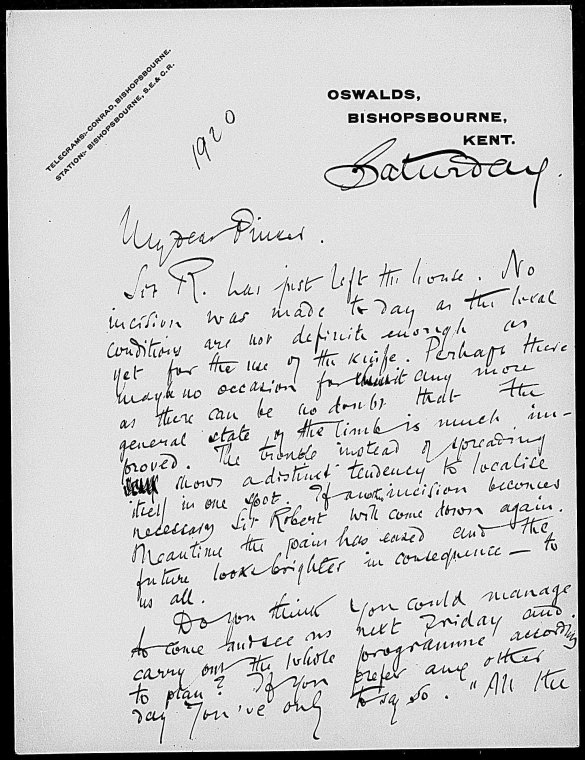 TELEGRAMS:- CONRAD, BISHOPSBOURNE.
STATION:- BISHOPSBOURNE, S.E. & C.R.
1920
OSWALDS,
BISHOPSBOURNE,
KENT.
Saturday.
My dear Pinker.
Sir R. has just left the house. No
incision was made to day as the local
conditions are not definite enough as
yet for the use of the knife. Perhaps there
may be no occasion for any more
as there can be no doubt that the
general state of the limb is much im-
proved. The trouble instead of spreading
shows a distinct tendency to localise
itself in one spot. If another incision becomes
necessary Sir Robert will come down again.
Meantime the pain has eased and the
future looks brighter in consequence — to
us all.
Do you think you could manage
to come and see us next Friday and
carry out the whole programme according
to plan? If you prefer any other
day you've only to say so. "All the